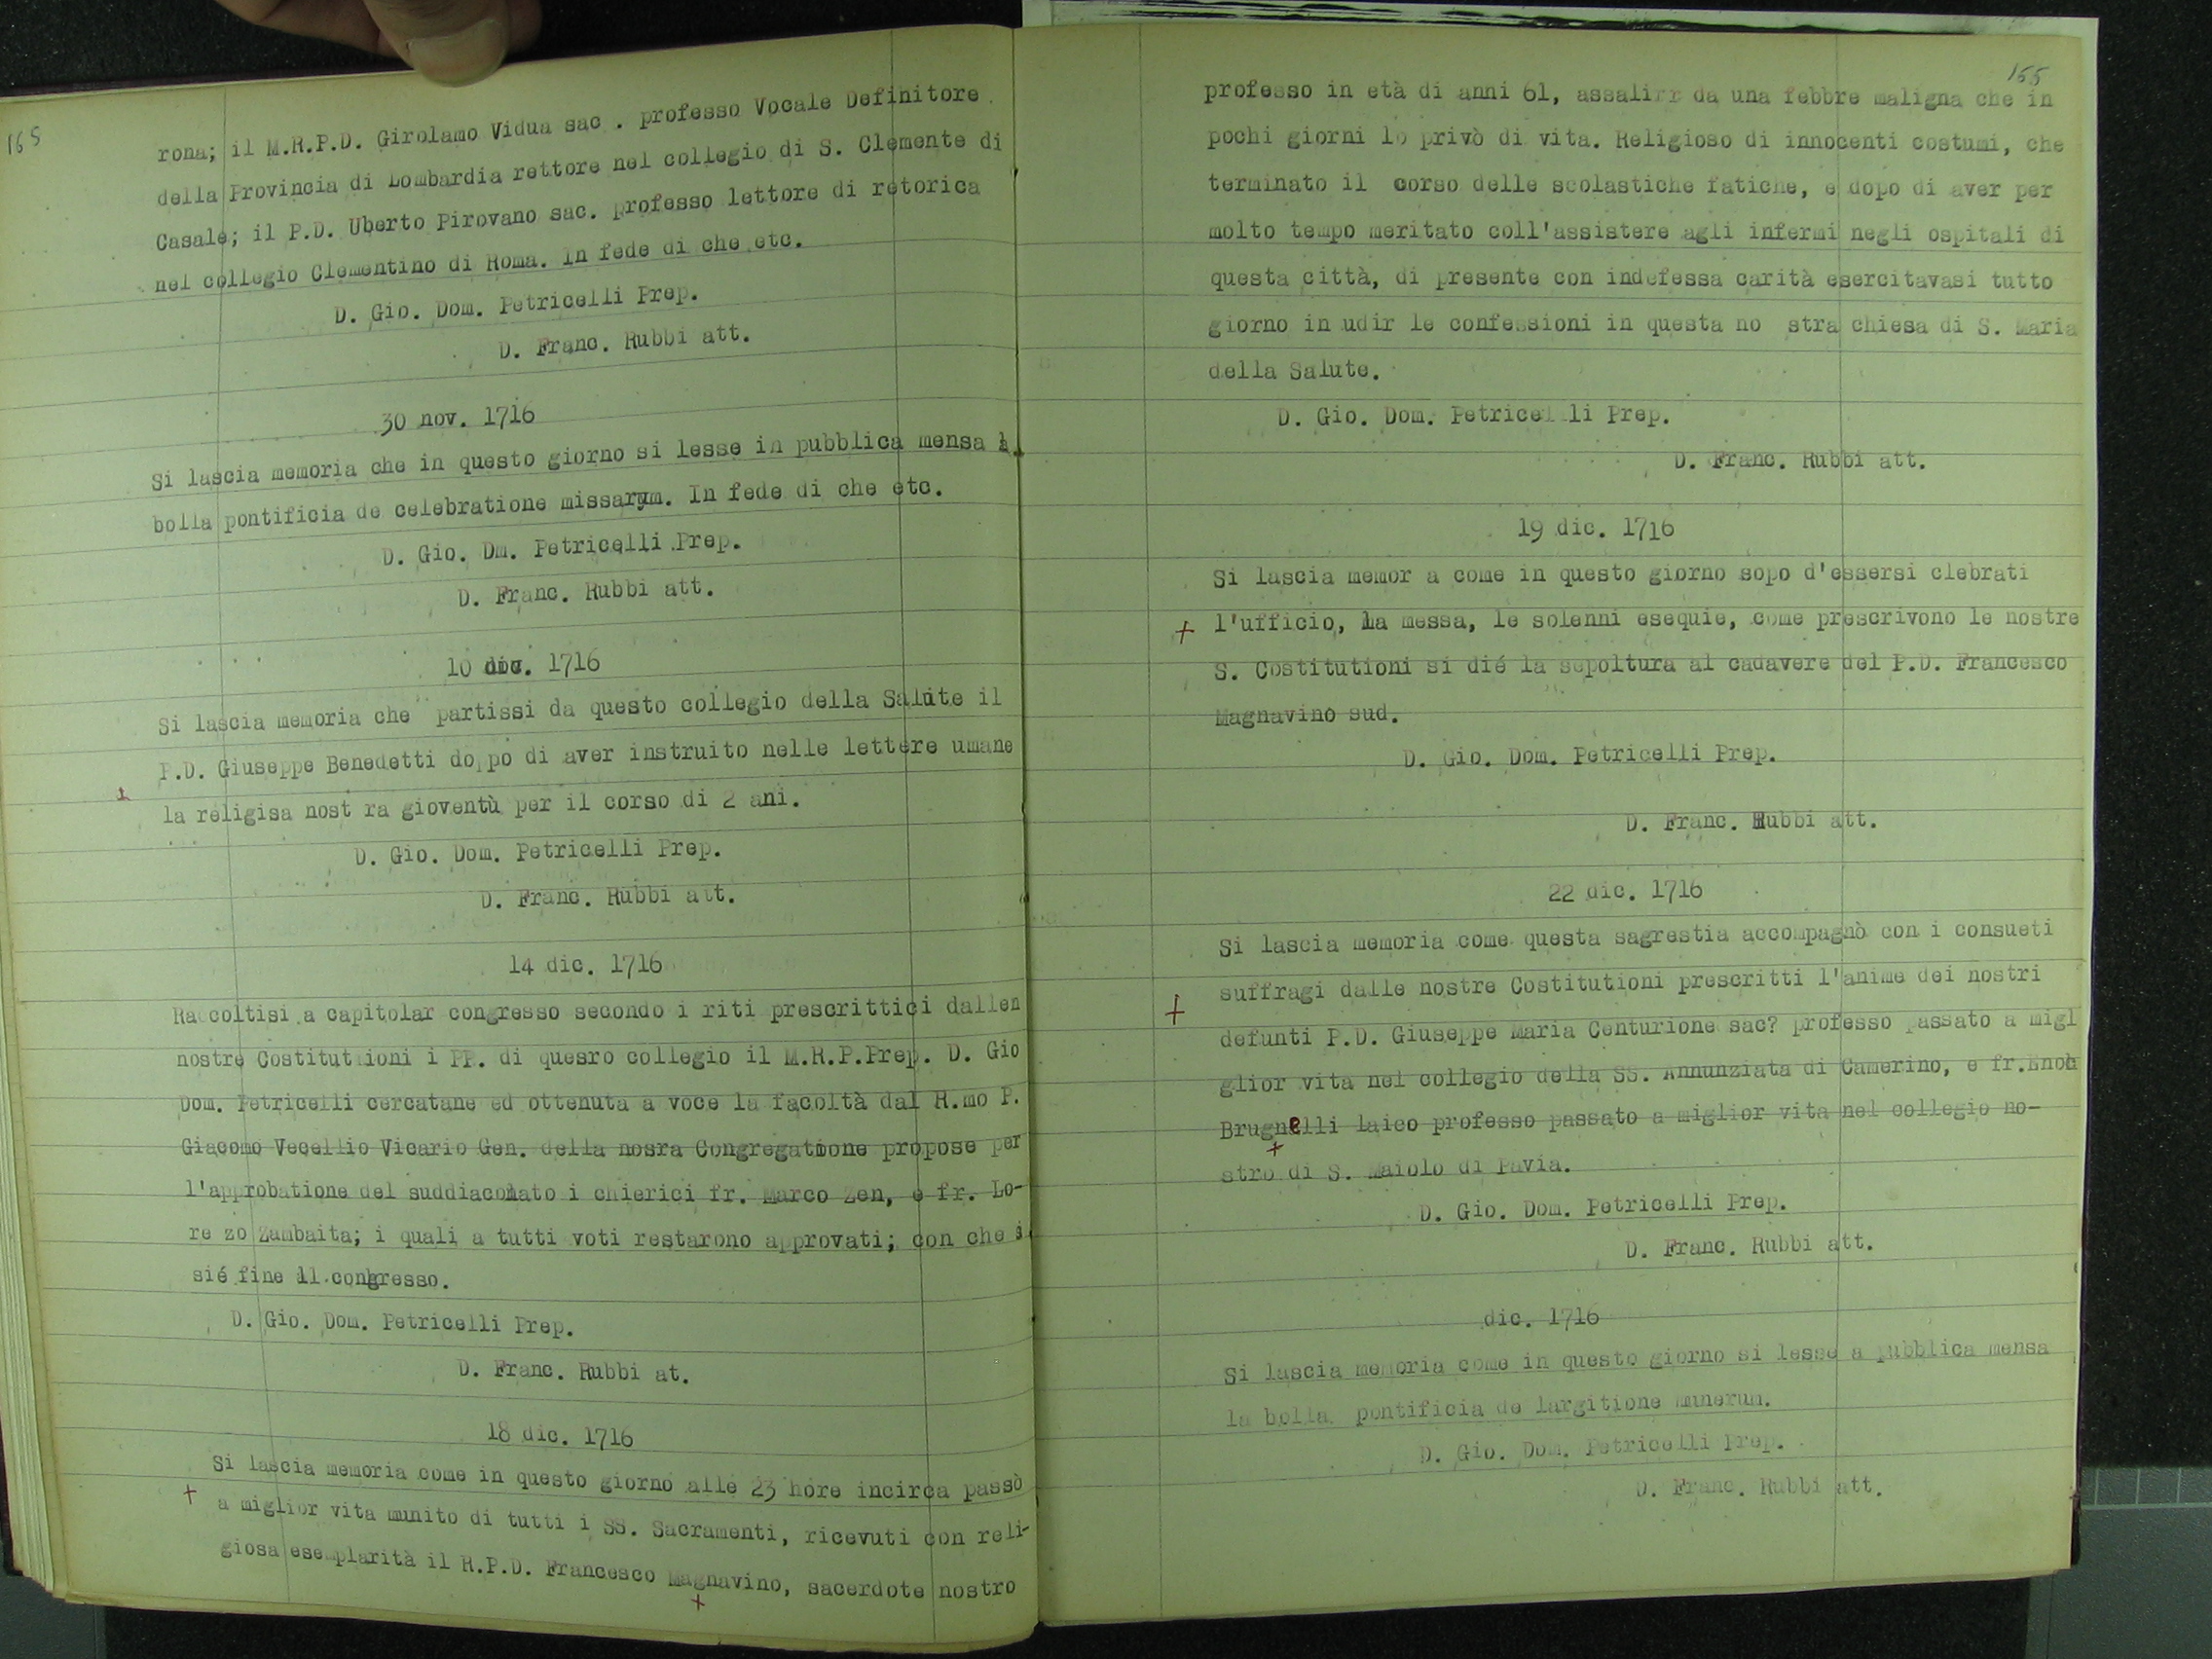 165
rona; il M.R.P.D. Girolamo Vidua sac . professo Vocale Definitore
della Provincia di Lombardia rettore nel collegio di S. Clemente di
Casale; il P.D. Uberto Pirovano sac. professo lettore di retorica
nel collegio Clementino di Roma. In fede di che etc.
D. Gio. Dom. Petricelli Prep.
D. Franc. Rubbi att.
30 nov. 1716
Si lascia memoria che in questo giorno si lesse in pubblica mensa la
bolla pontificia de celebratione missarum. In fede di che etc.
D. Gio. Dm. Petricelli Prep.
D. Franc. Rubbi att.
10 dic. 1716
Si lascia memoria che partissi da questo collegio della Salute il
P.D. Giuseppe Benedetti doppo di aver instruito nelle lettere umane
la religisa nost ra gioventù per il corso di 2 ani.
D. Gio. Dom. Petricelli Prep.
D. Franc. Rubbi att.
14 dic. 1716
Raccoltisi a capitolar congresso secondo i riti prescrittici dallen
nostre Costitutioni i PP. di quesro collegio il M.R.P.Prep. D. Gio
Dom. Petricelli cercatane ed ottenuta a voce la facoltà dal R.mo P.
Giacomo Vecellio Vicario Gen. della nosra Congregatione propose per
l'approbatione del suddiaconato i chierici fr. Marco Zen, e fr. Lo-
re zo Zambaita; i quali a tutti voti restarono approvati; con che si
sié fine il congresso.
D. Gio. Dom. Petricelli Prep.
D. Franc. Rubbi at.
18 dic. 1716
Si lascia memoria come in questo giorno alle 23 hore incirca passò
+ a miglior vita munito di tutti i SS. Sacramenti, ricevuti con reli-
giosa esemplarità il R.P.D. Francesco Magnavino, sacerdote nostro
+
155
professo in età di anni 61, assalirr da una febbre maligna che in
pochi giorni lo privò di vita. Religioso di innocenti costumi, che
terminato il corso delle scolastiche fatiche, e dopo di aver per
molto tempo meritato coll'assistere agli infermi negli ospitali di
questa città, di presente con indefessa carità esercitavasi tutto
giorno in udir le confessioni in questa no stra chiesa di S. Maria
della Salute.
D. Gio. Dom. Petricelli Prep.
D. Franc. Rubbi att.
19 dic. 1716
Si lascia memor a come in questo giorno sopo d'essersi clebrati
+ l'ufficio, la messa, le solenni esequie, come prescrivono le nostre
S. Costitutioni si dié la sepoltura al cadavere del P.D. Francesco
Magnavino sud.
D. Gio. Dom. Petricelli Prep.
D. Franc. Rubbi att.
22 dic. 1716
Si lascia memoria come questa sagrestia accompagnò con i consueti
+ suffragi dalle nostre Costitutioni prescritti l'anime dei nostri
defunti P.D. Giuseppe Maria Centurione sac? professo passato a migl
glior vita nel collegio della SS. Annunziata di Camerino, e fr.Enoc
Brugnelli laico professo passato a miglior vita nel collegio no-
+
stro di S. Maiolo di Pavia.
D. Gio. Dom. Petricelli Prep.
D. Franc. Rubbi att.
dic. 1716
Si lascia memoria come in questo giorno si lesse a pubblica mensa
la bolla pontificia de largitione munerum.
D. Gio. Dom. Petricelli Prep.
D. Franc. Rubbi att.